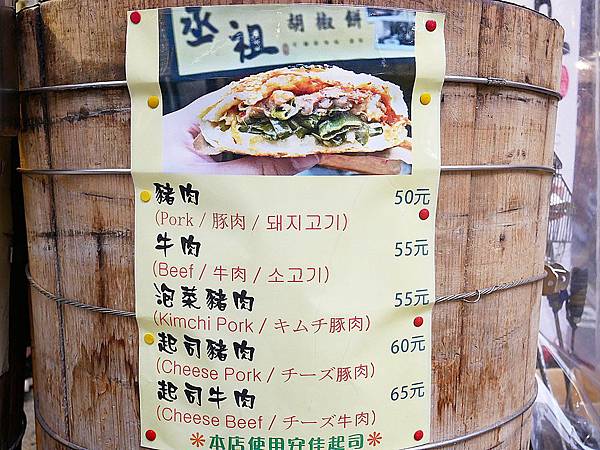 丞祖
胡椒餅
豬肉 50元
(Pork / 豚肉 / 돼지고기)
牛肉 55元
(Beef / 牛肉 / 소고기)
泡菜豬肉 55元
(Kimchi Pork / キムチ豚肉)
起司豬肉 60元
(Cheese Pork / チーズ豚肉)
起司牛肉 65元
(Cheese Beef / チーズ牛肉)
※本店使用安佳起司※